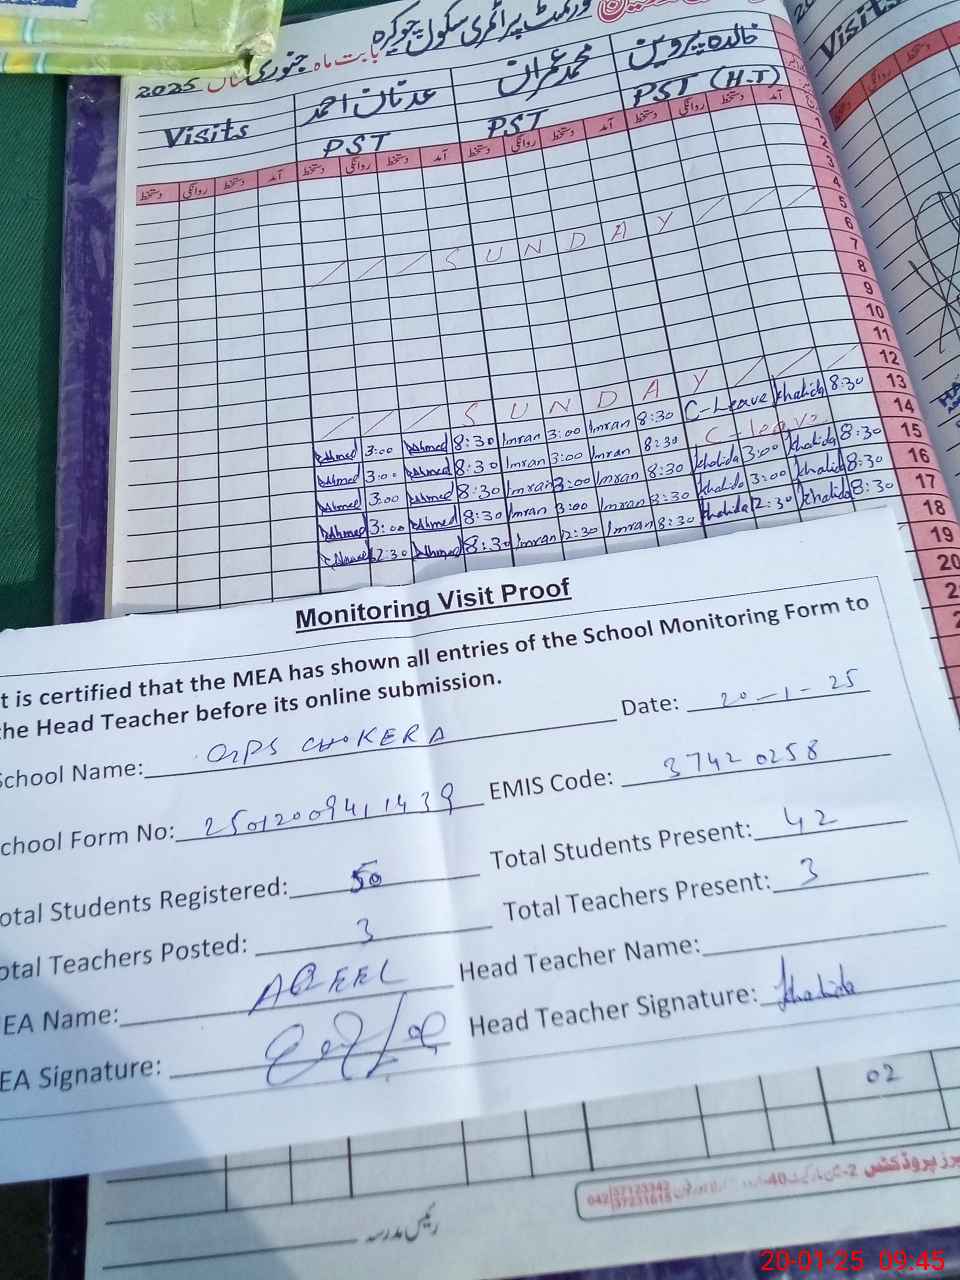 گورنمنٹ پرائمری سکول چوکرہ بابت ماہ جنوری سال 2025
Visits عدنان احمد محمد عمران خالدہ پروین
PST PST PST (H.T)
دستخط روانگی دستخط آمد دستخط روانگی دستخط آمد دستخط روانگی دستخط آمد دستخط روانگی دستخط آمد
2
3
4
5
SUNDAY 6
7
8
9
10
11
12
SUNDAY
13 Ahmed 3:00 Ahmed 8:30 Imran 3:00 Imran 8:30 C-Leave Khalida 8:30
14 Ahmed 3:00 Ahmed 8:30 Imran 3:00 Imran 8:30 C-leave
15 Ahmed 3:00 Ahmed 8:30 Imran 3:00 Imran 8:30 Khalida 3:00 Khalida 8:30
16 Ahmed 3:00 Ahmed 8:30 Imran 3:00 Imran 8:30 Khalida 3:00 Khalida 8:30
17 Ahmed 12:30 Ahmed 8:30 Imran 12:30 Imran 8:30 Khalida 12:30 Khalida 8:30
18
19
20
Monitoring Visit Proof
t is certified that the MEA has shown all entries of the School Monitoring Form to
the Head Teacher before its online submission.
School Name: GPS CHOKERA Date: 20-1-25
chool Form No: 25012009411439 EMIS Code: 37420258
otal Students Registered: 50 Total Students Present: 42
otal Teachers Posted: 3 Total Teachers Present: 3
EA Name: AQEEL Head Teacher Name:
EA Signature: Head Teacher Signature: Khalida
02
رئیس مدرسہ
042 37123342
37231615
20-01-25 09:45